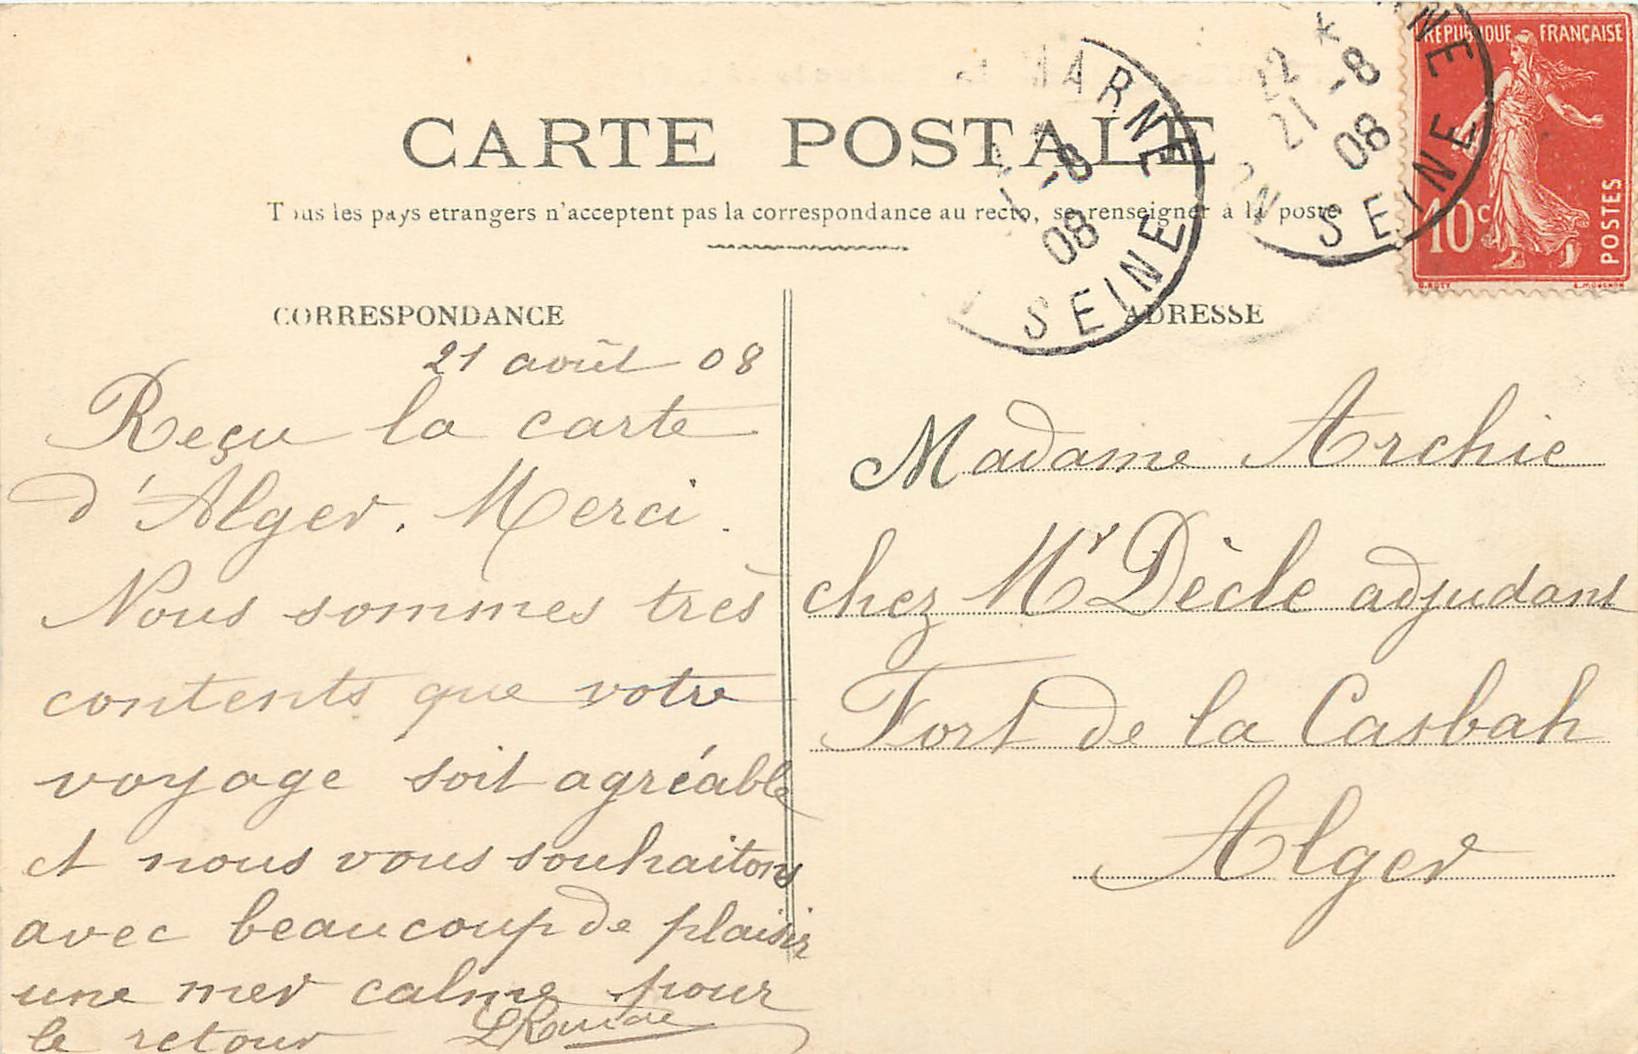 CARTE POSTALE
Tous les pays etrangers n'acceptent pas la correspondance au recto, se renseigner à la poste
CORRESPONDANCE
21 août 08
Reçu la carte
d'Alger. Merci.
Nous sommes très
contents que votre
voyage soit agréable
et nous vous souhaitons
avec beaucoup de plaisir
une mer calme pour
le retour
ADRESSE
Madame Archie
chez Mr Dècle adjudant
Fort de la Casbah
Alger
MARNE
-8
08
SEINE
RNE
22
21 -8
08
SEINE
REPUBLIQUE FRANÇAISE
10c
POSTES
O. ROTY E. MOUCHON